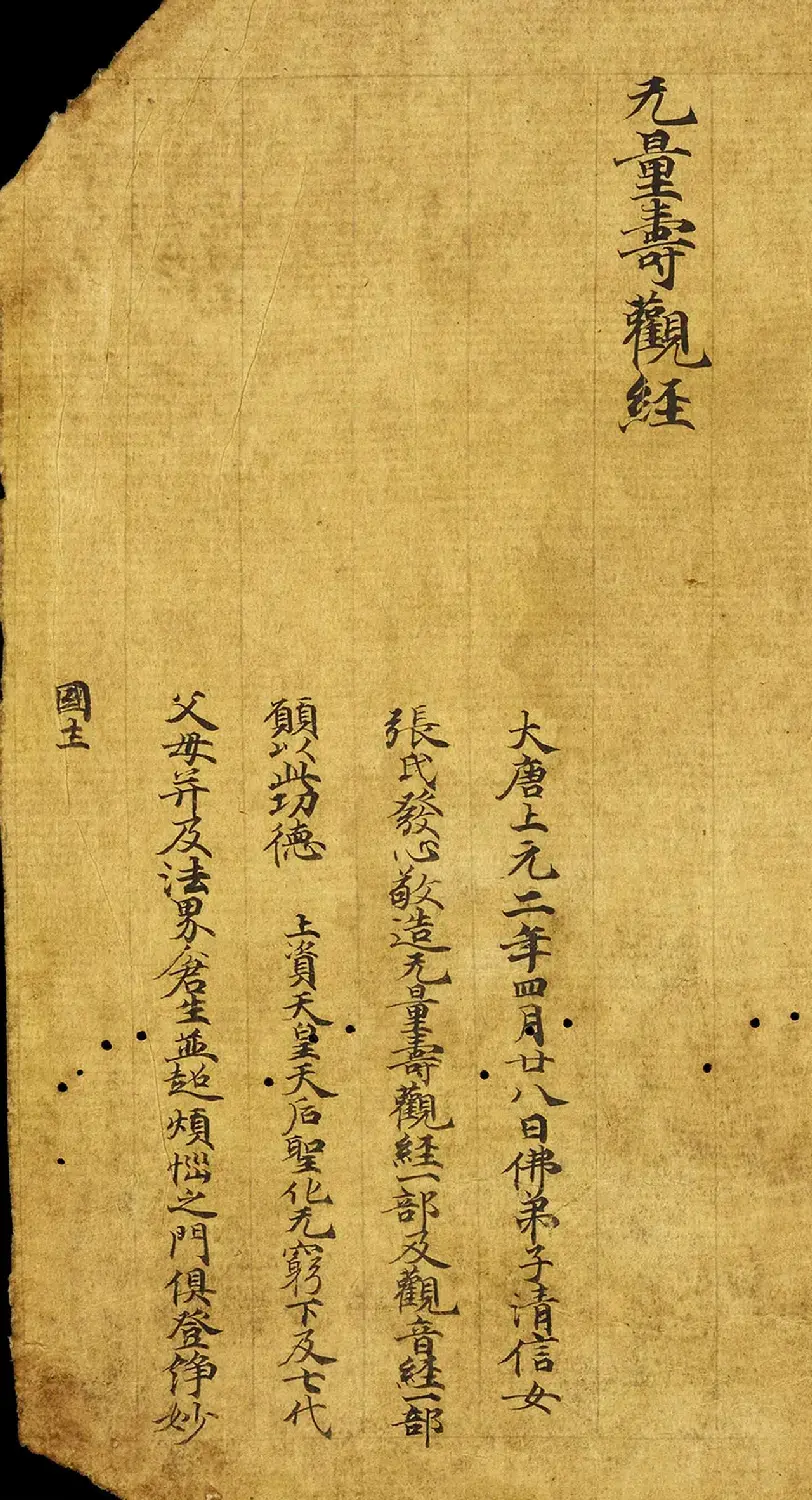 无量壽觀経
大唐上元二年四月廿八日佛弟子清信女
張氏發心敬造无量壽觀経一部及觀音経一部
願以此功德　上資天皇天后聖化无窮下及七代
父母并及法界倉生並超煩惱之門俱登淨妙
國土